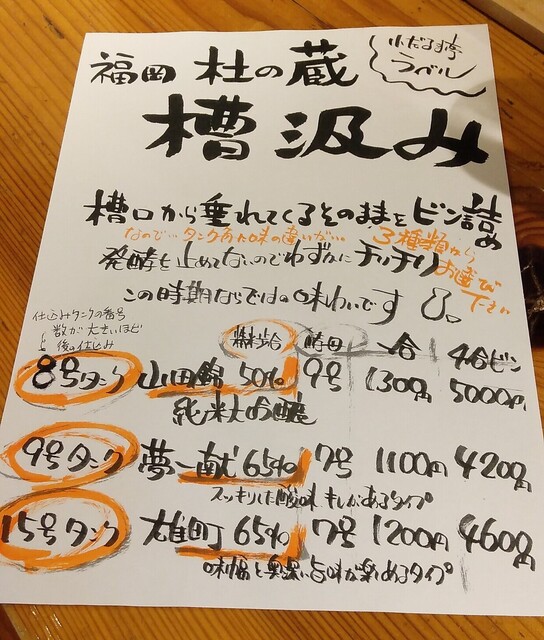 福岡 杜の蔵
小だるま亭
ラベル
槽汲み
槽口から垂れてくるそのままをビン詰め
なので… タンク毎に味の違いが… 3種類からお選び下さい
発酵を止めてないのでわずかにチリチリ
この時期ならではの味わいです
仕込みタンクの番号
数が大きいほど
後の仕込み
精米歩合 酵母 一合 4合ビン
8号タンク 山田錦 50% 9号 1300円 5000円
純米大吟醸
9号タンク 夢一献 65% 7号 1100円 4200円
スッキリした酸味 キレがあるタイプ
15号タンク 雄町 65% 7号 1200円 4600円
味幅と奥深い旨味が楽しめるタイプ